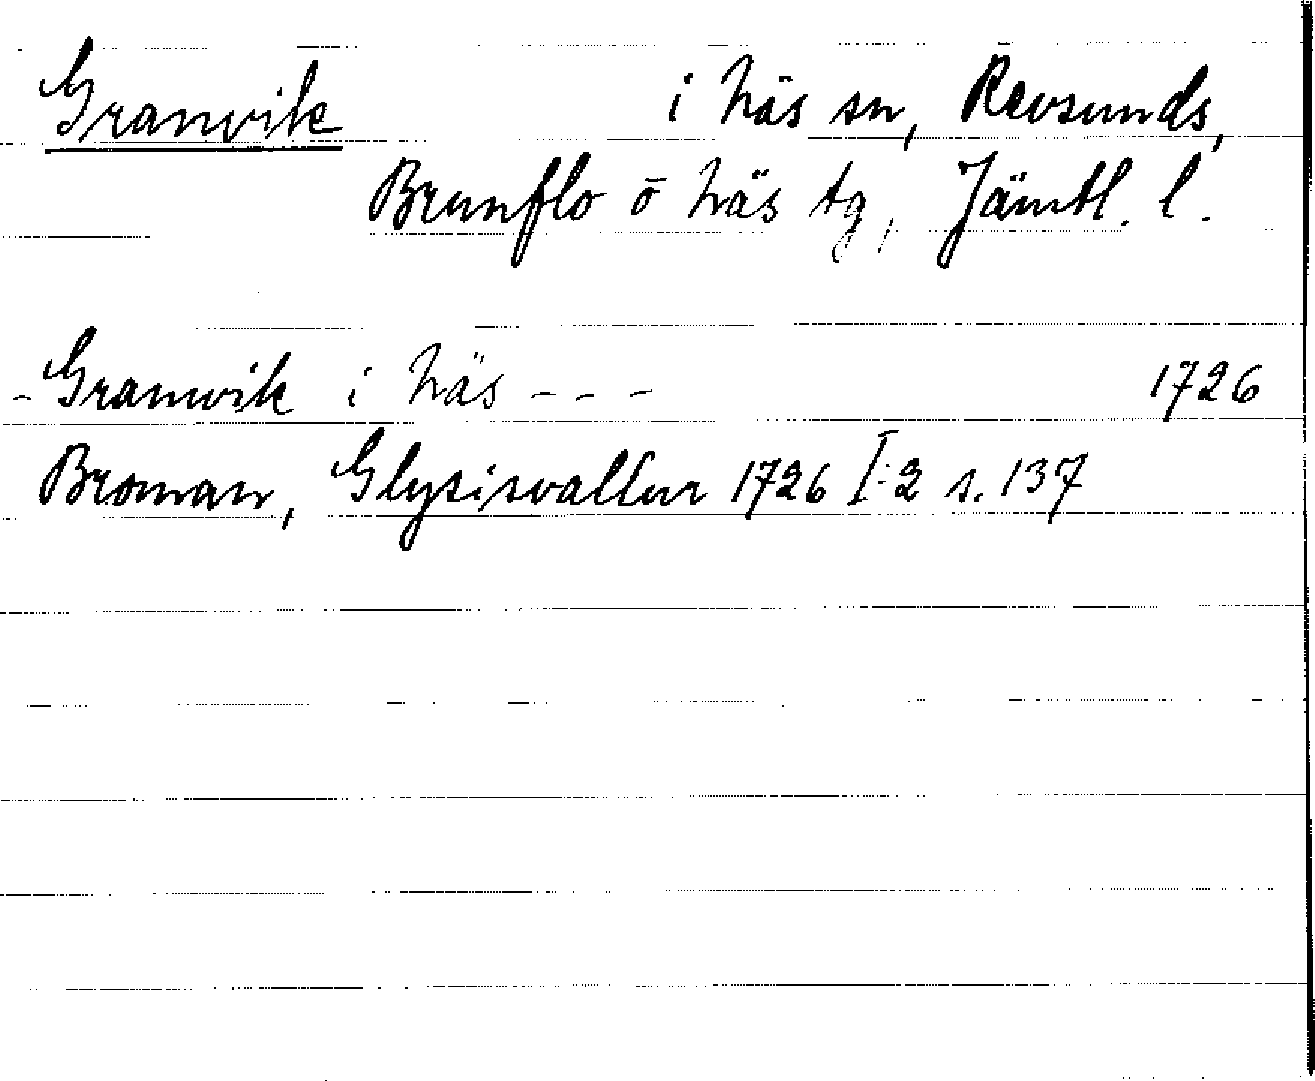 Granvik i Näs sn, Revsunds,
Brunflo o Näs tg, Jämtl. l.
- Granwik i Näs - - - 1726
Broman, Glysisvallur 1726 I:2 s. 137